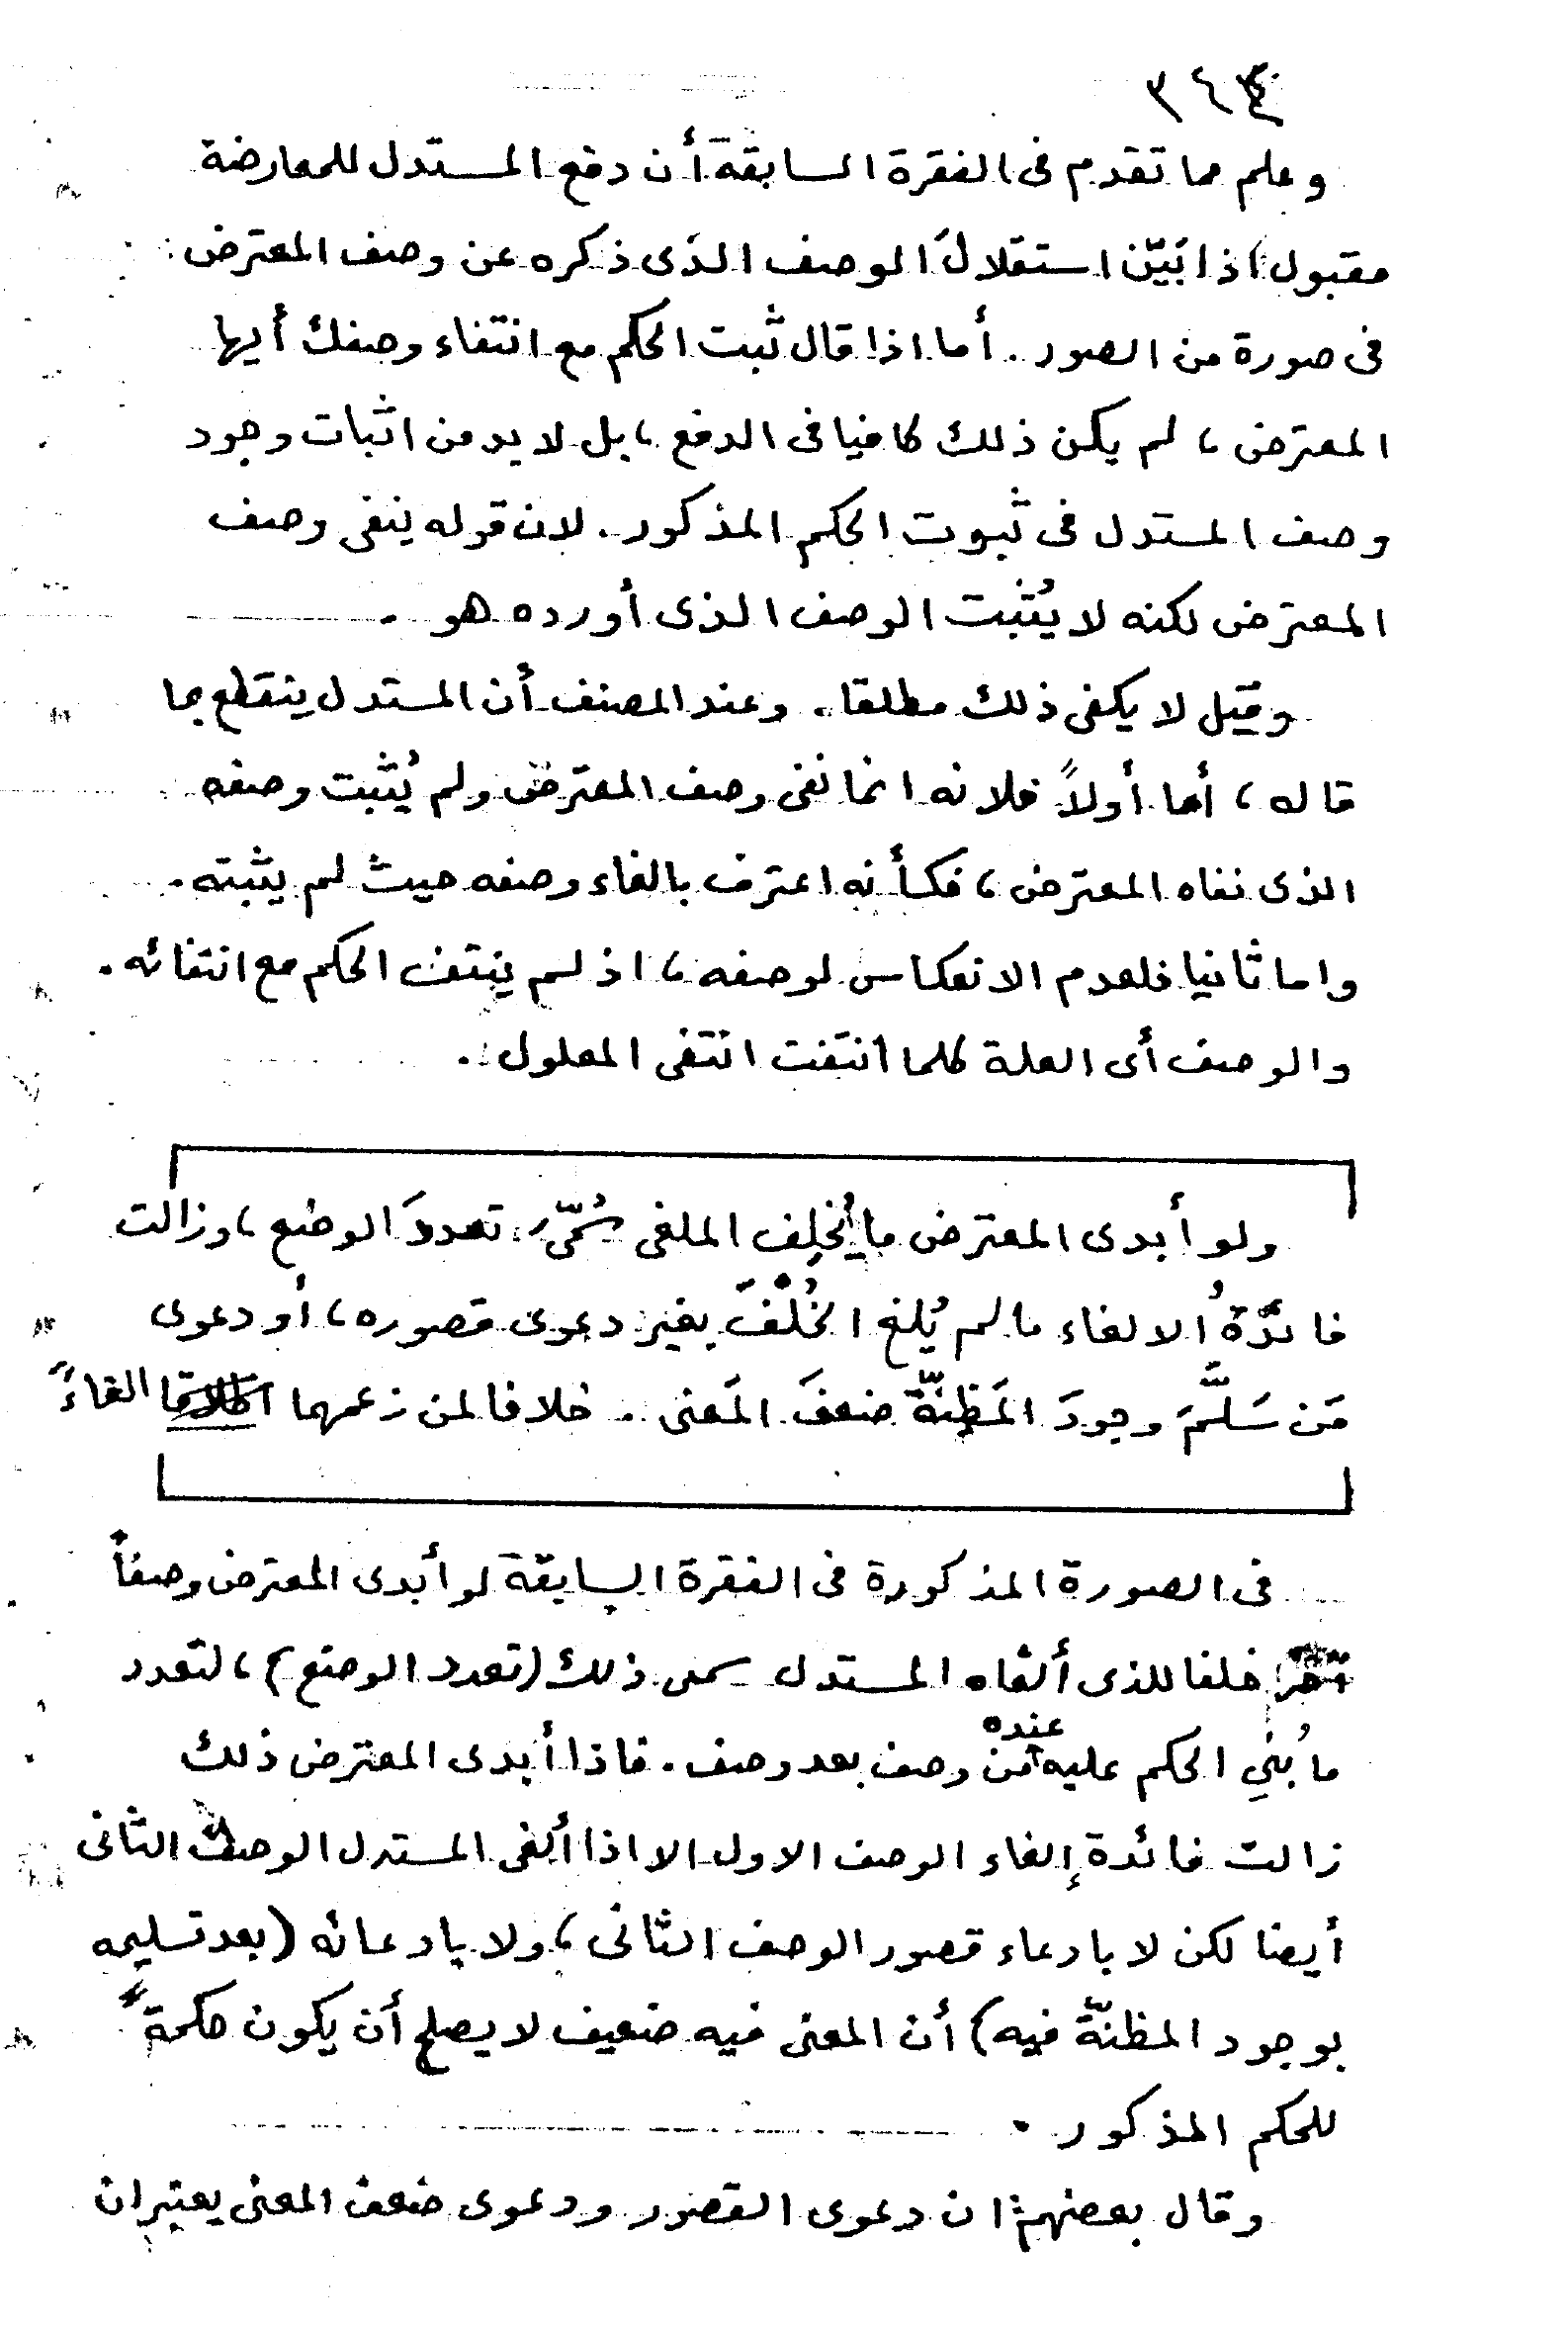 ٣٤٣
وعلم مما تقدم فى الفقرة السابقة أن دفع المستدل للمعارضة
مقبول اذا بَيّن استقلالَ الوصف الذى ذكره عن وصف المعترض
فى صورة من الصور. أما اذا قال ثبت الحكم مع انتفاء وصفك أيها
المعترض، لم يكن ذلك كافيا فى الدفع، بل لا بد من اثبات وجود
وصف المستدل فى ثبوت الحكم المذكور. لان قوله ينفى وصف
المعترض لكنه لا يُثبت الوصف الذى أورده هو.
وقيل لا يكفى ذلك مطلقا. وعند المصنف أن المستدل ينقطع بما
قاله، أما أولاً فلانه انما نفى وصف المعترض ولم يُثبت وصفه
الذى نفاه المعترض، فكأنه اعترف بالغاء وصفه حيث لم يثبته.
واما ثانيا فلعدم الانعكاس لوصفه، اذ لم ينتف الحكم مع انتفائه.
والوصف أى العلة كلما انتفت انتفى المعلول.
ولو أبدى المعترض ما يُخلِف الملغى سُمّى تعددَ الوضع، وزالت
فائدةُ الالغاء ما لم يُلغ الخُلْفَ بغير دعوى قصوره، أو دعوى
مَن سَلَّمَ وجودَ المَظِنّة ضعفَ المَعنى. خلافا لمن زعمهما الغاءً
فى الصورة المذكورة فى الفقرة السابقة لو أبدى المعترض وصفاً
آخر خلفا للذى ألغاه المستدل سمى ذلك (تعدد الوضع)، لتعدد
ما بُنِي الحكم عليه عنده من وصف بعد وصف. فاذا أبدى المعترض ذلك
زالت فائدة إلغاء الوصف الاول الا اذا ألغى المستدل الوصف الثانى
أيضا لكن لا بادعاء قصور الوصف الثانى، ولا بادعائه (بعد تسليمه
بوجود المظنّة فيه) أن المعنى فيه ضعيف لا يصلح أن يكون حكمة
للحكم المذكور.
وقال بعضهم ان دعوى القصور ودعوى ضعف المعنى يعتبران